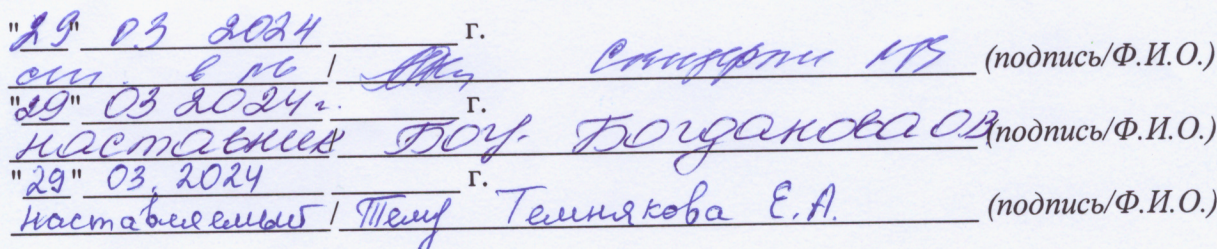 "29" 03 2024 г.
ст. в / (подпись/Ф.И.О.)
"29" 03 2024г. г.
наставник / Богданова ОВ (подпись/Ф.И.О.)
"29" 03. 2024 г.
наставляемый / Темнякова Е.А. (подпись/Ф.И.О.)